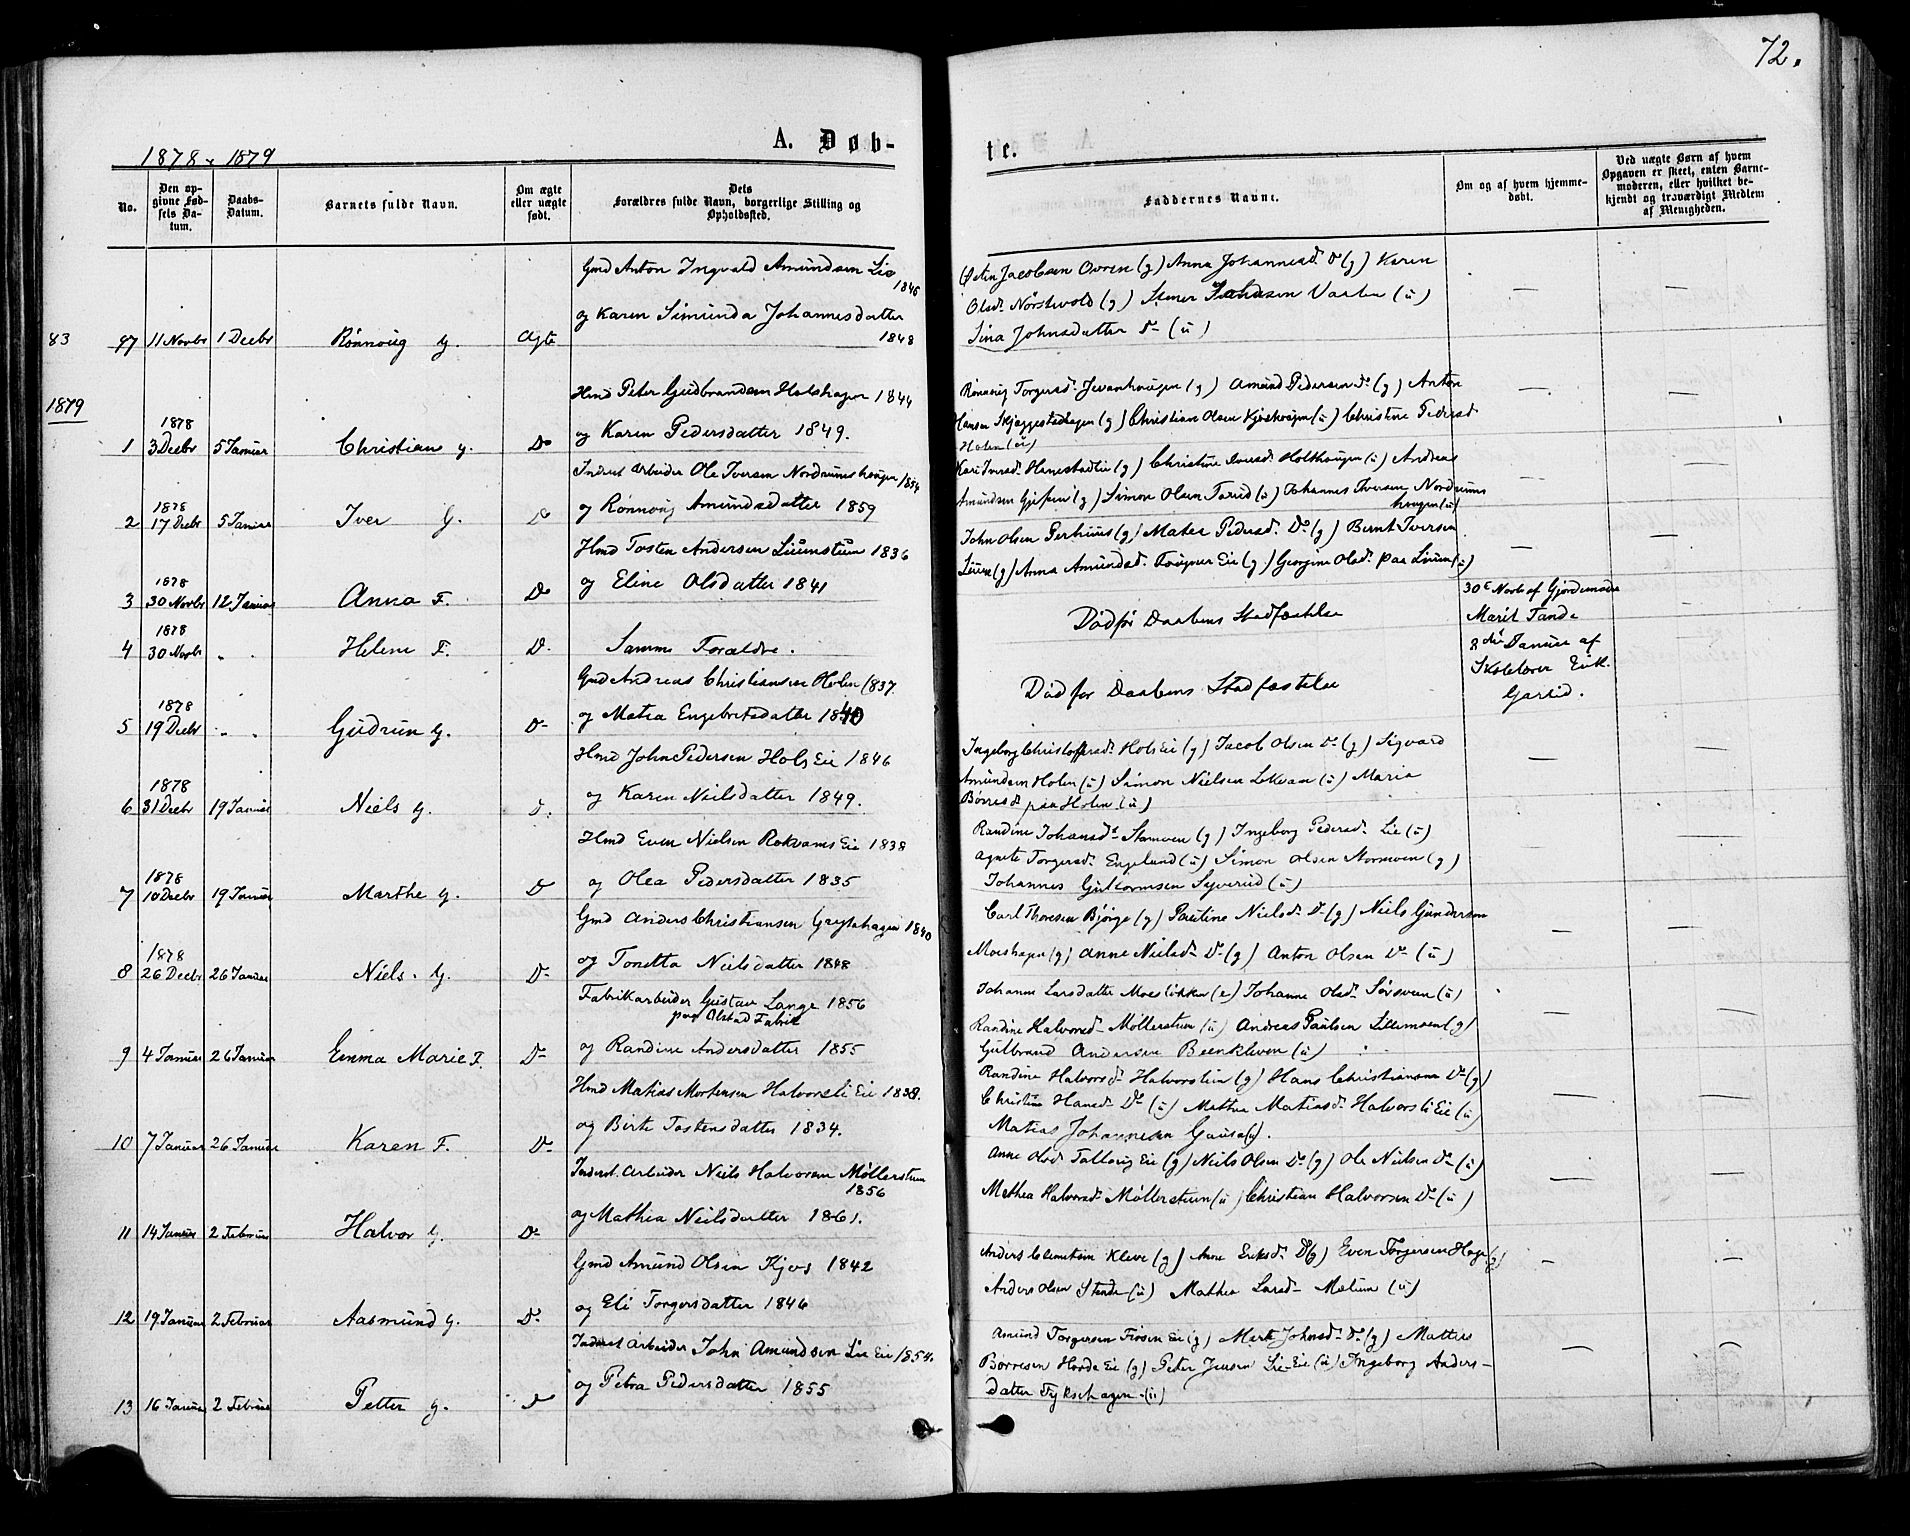 72.
1878 & 1879
A. Døb-
te.
No.
Den op-
givne Fød-
sels Da-
tum.
Daabs-
Datum.
Barnets fulde Navn.
Om ægte
eller uægte
født.
Dets
Forældres fulde Navn, borgerlige Stilling og
Opholdssted.
Faddernes Navne.
Om og af hvem hjemme-
døbt.
Ved uægte Børn af hvem
Opgaven er skeet, enten Barne-
moderen, eller hvilket be-
kjendt og troværdigt Medlem
af Menigheden.
Gmd Anton Ingvald Amundsen Lie
1846
og Karen Simunda Johannesdatter
1848
83 97 11 Novbr 1 Decbr Rønnoug g. Ægte
Østen Jacobsen Ovren (g) Anna Johannesd. Do (g) Karen
Olsd. Nørstevold (g) Stener Vaalen (u)
Sina Johnsdatter Do (u)
1879
Hmd Peter Gudbrandsen Holshagen 1844
og Karen Pedersdatter 1849.
1 1878 3 Decbr 5 Januar Christian g. Do
Rønnoug Torgersd. (g) Amund Pedersen Do (g) Anton
Hansen Skjæggestadhagen (g) Christian Olsen (u) Christine Pedersd
Holen (u)
Inderst Arbeider Ole Iversen Nordrumshaugen 1854
og Rønnoug Amundsdatter 1859
2 1878 17 Decbr 5 Januar Iver G. Do
Kari Iversd. Hanestadlie (g) Christine Iversd. Holthaugen (u) Andreas
Amundsen (g) Simon Olsen (u) Johannes Iversen Nordrums
haugen (u)
Hmd Tosten Andersen Liumstuen 1836
og Eline Olsdatter 1841
3 1878 30 Novbr 12 Januar Anna F. Do
John Olsen (g) Mathea Pedersd. Do (g) Bernt Iversen
(g) Anna Amundsd. Eie (g) Georgine Olsd. paa Lium (u)
4 1878 30 Novbr " " Helene F. D.
Samme Forældre.
Død før Daabens Stadfæstelse
30te Novb af Gjordemoder
Marit Tande
Gmd Andreas Christiansen Holen 1837
og Mathea Engebretsdatter 1840
5 1878 19 Decbr " " Gudrun g. D-
Død før Daabens Stadfæstelse
8de Januar af
Skolelærer Erik
Hmd John Pedersen Hols Eie 1846
og Karen Nielsdatter 1849.
6 1878 31 Decbr 19 Januar Niels g. D.
Ingeborg Christoffersd. Hols Eie (g) Jacob Olsen Do (g) Sigvard
Amundsen Holen (u) Simon Nielsen (u) Maria
Børresd. paa Holen (u)
Hmd Even Nielsen Rokvams Eie 1838
og Olea Pedersdatter 1835
7 1878 10 Decbr 19 Januar Marthe g. D
Randine Johansd. (g) Ingeborg Pedersd. Lie (u)
Agnete Torgersd. Engelund (u) Simon Olsen (g)
Johannes Guttormsen Syverud (u)
Gmd Anders Christiansen 1840
og Tonetta Nielsdatter 1848
8 1878 26 Decbr 26 Januar Niels. G. D-
Carl Thoresen Bjørge (g) Pauline Nielsd. Do (g) Niels Gundersen
Moeshagen (g) Anne Nielsd. Do (g) Anton Olsen Do (u)
Fabrikarbeider Gustav Lange 1856
paa Olstad Fabrik
og Randine Andersdatter 1855
9 4 Januar 26 Januar Emma Marie F. D-
Johanne Larsdatter Moesløkken (e) Johanne Olsd. Sørsveen (u)
Randine Halvorsd. Møllerstuen (u) Andreas Paulsen Lillemoen (g)
Gulbrand Andersen (u)
Hmd Mathias Mortensen Halvorsli Eie 1838.
og Birte Tostensdatter 1834.
10 7 Januar 26 Januar Karen F. D-
Randine Halvorsd. Halvorslien (g) Hans Christiansen Do (g)
Christine Hansd. Do (u) Mathea Mathiasd. Halvorsli Eie (u)
Matias Johannesen Gausa (u).
Inderst. Arbeider Niels Halvorsen Møllerstuen
1856
og Mathea Nielsdatter 1861.
11 14 Januar 2 Februar Halvor G. D-
Anne Olsd. Eie (g) Niels Olsen Do (g) Ole Nielsen Do (u)
Mathea Halvorsd. Møllerstuen (u) Christian Halvorsen Do (u)
Gmd Amund Olsen Kjos 1842
og Eli Torgersdatter 1846
12 19 Januar 2 Februar Aasmund g. D-
Anders Clemetsen Kleve (g) Anne Eriksd. Do (g) Even Torgersen Hage (g)
Anders Olsen Stende (u) Mathea Larsd. (u)
Inderst Arbeider John Amundsen Lie Eie 1854.
og Petra Pedersdatter 1855
13 16 Januar 2 Februar Petter g. D
Amund Torgersen Eie (g) Marte Johnsd. Do (g) Mathis
Børresen Eie (g) Peter Jensen Lie-Eie (u) Ingeborg Anders-
datter (u)